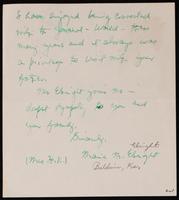 I have enjoyed being associated
with the Journal-World these
many years and it always was
a privilege to visit with your
father.
Mr. Ebright joins me in
deepest sympathy to you and
your family.
Sincerely,
(Mrs. H. K.) Marie M. Ebright
Ebright
Baldwin, Kas.